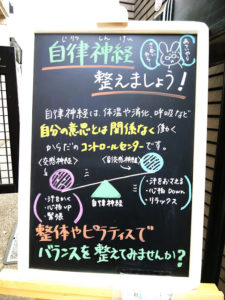 じりつしんけい
自律神経
整えましょう!
自律神経は、体温や消化、呼吸など
自分の意思とは関係なく働く
からだのコントロールセンターです。
<交感神経>
<副交感神経>
・汗をかく
・心拍up
・緊張
自律神経
・汗をおさえる
・心拍Down
・リラックス
整体やピラティスで
バランスを整えてみませんか?